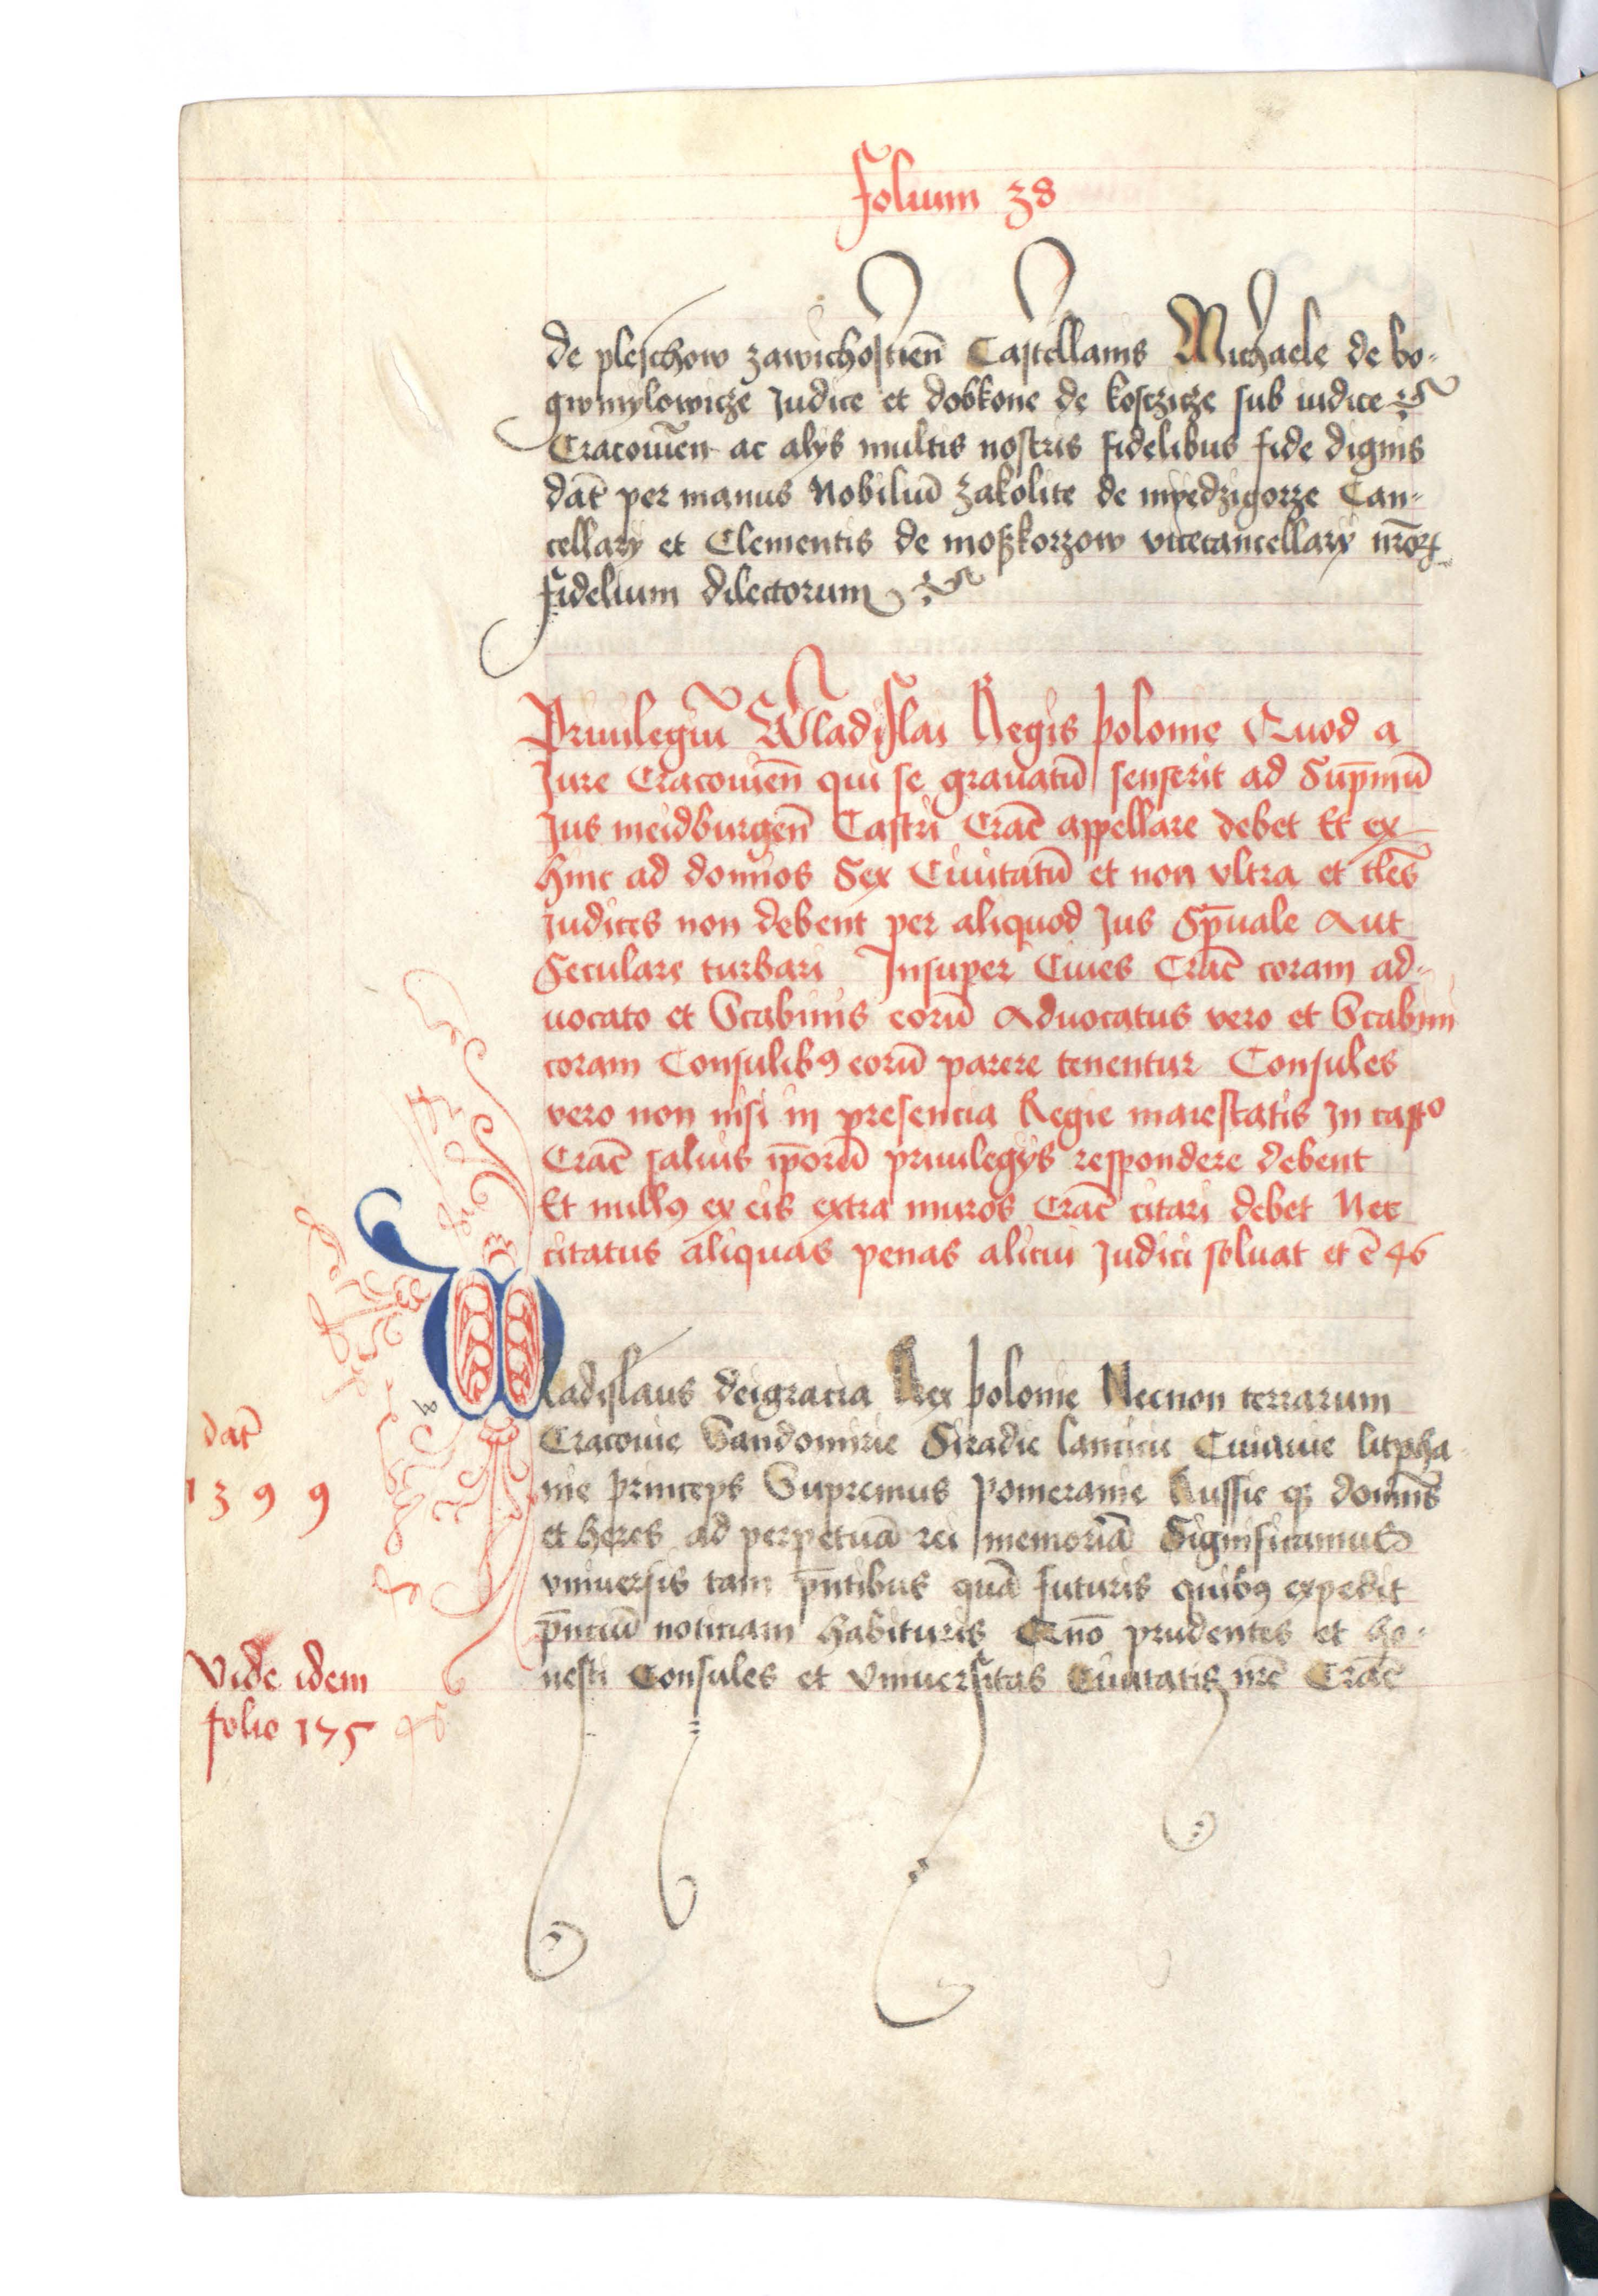 Folium 38
de pleschow zawichostien̄ Castellanis Michaele de bo-
gwmylowicze Judice et dobkone de kosczicze sub iudice
Cracouien̄ ac alijs multis nostris fidelibus fide dignis
dat̄ per manus Nobiliū zakolite de myedzigorze Can-
cellarij et Clementis de moßkorzow vicecancellarij nr̄oꝝ
fidelium dilectorum
Priuilegiū Wladislai Regis polonie Quod a
Jure Cracouien̄ qui se grauatū senserit ad Sup̄mū
Jus meidburgen̄ Castri Crac̄ appellare debet Et ex
hinc ad domīos Sex Ciuitatū et non vltra et tl̄es
Judices non debent per aliquod Jus Sp̄uale Aut
Seculare turbari Insuper Ciues Crac̄ coram ad-
uocato et Scabinis eorū Aduocatus vero et Scabini
coram Consulibꝰ eorū parere tenentur Consules
vero non nisi in presencia Regie maiestatis In castº
Crac̄ saluis ip̄orū priuilegijs respondere debent
Et nullꝰ ex eis extra muros Crac̄ citari debet Nec
citatus aliquas penas alicui Judici soluat et ē 46
Wladislaus deigracia Rex polonie Necnon terrarum
dat̄
Cracouie Sandomirie Siradie lancicie Cuiauie litpha
1399
nie princeps Supremus pomeranie Russie qꝫ domin̄s
et heres ad perpetuā rei memoriā Significamus
vniuersis tam p̄ntibus quā futuris quibꝰ expedit
p̄nciū noticiam habituris Quō prudentes et ho-
Vide idem
nesti Consules et Vniuersitas Ciuitatis nr̄e Crac̄
folio 175
46